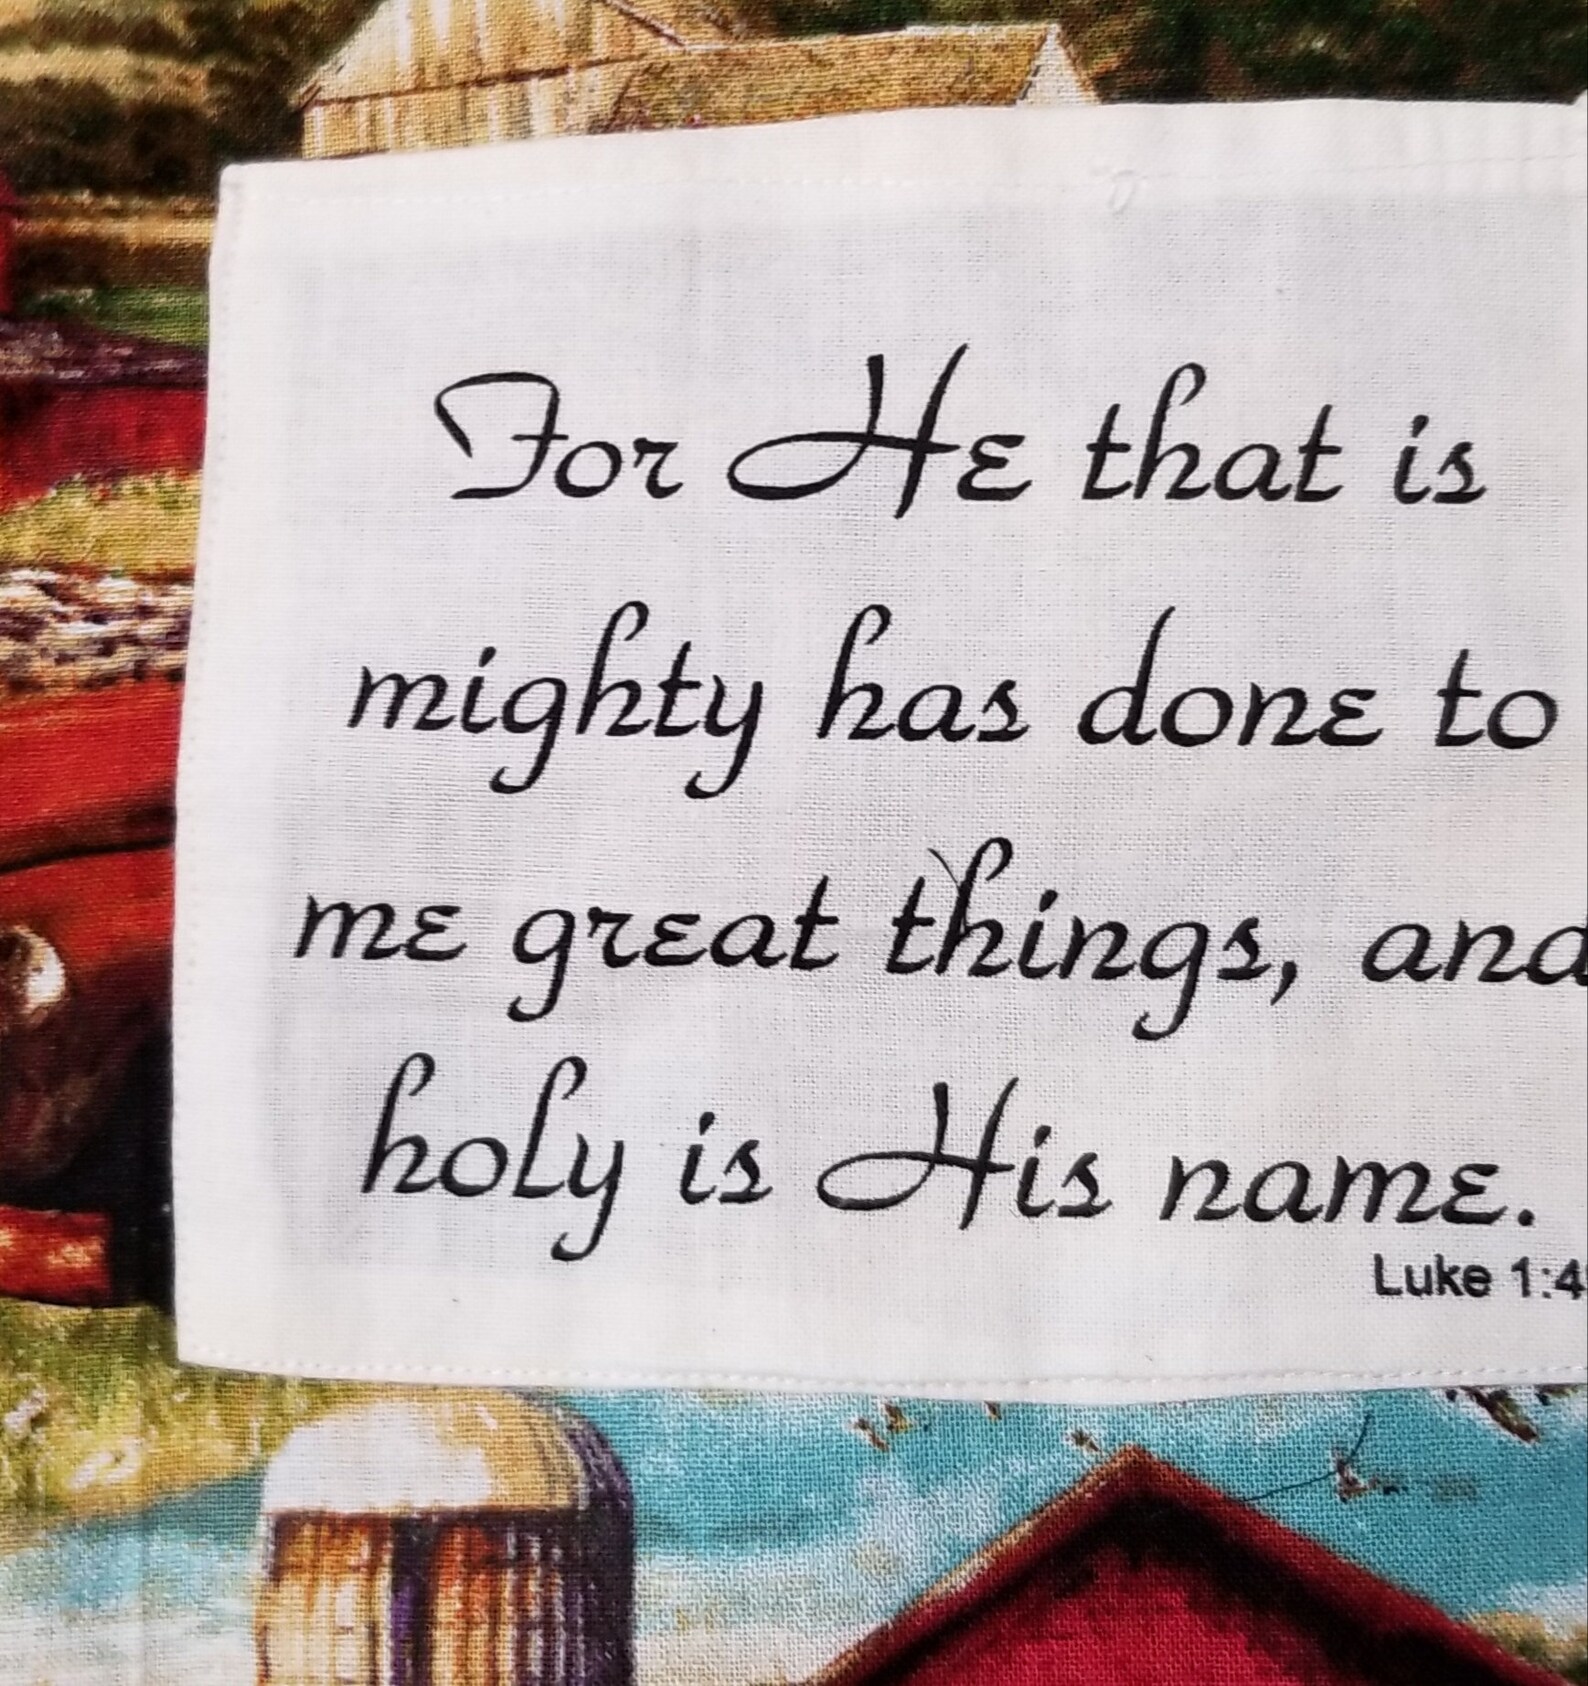 For He that is
mighty has done to
me great things, and
holy is His name.
Luke 1:4